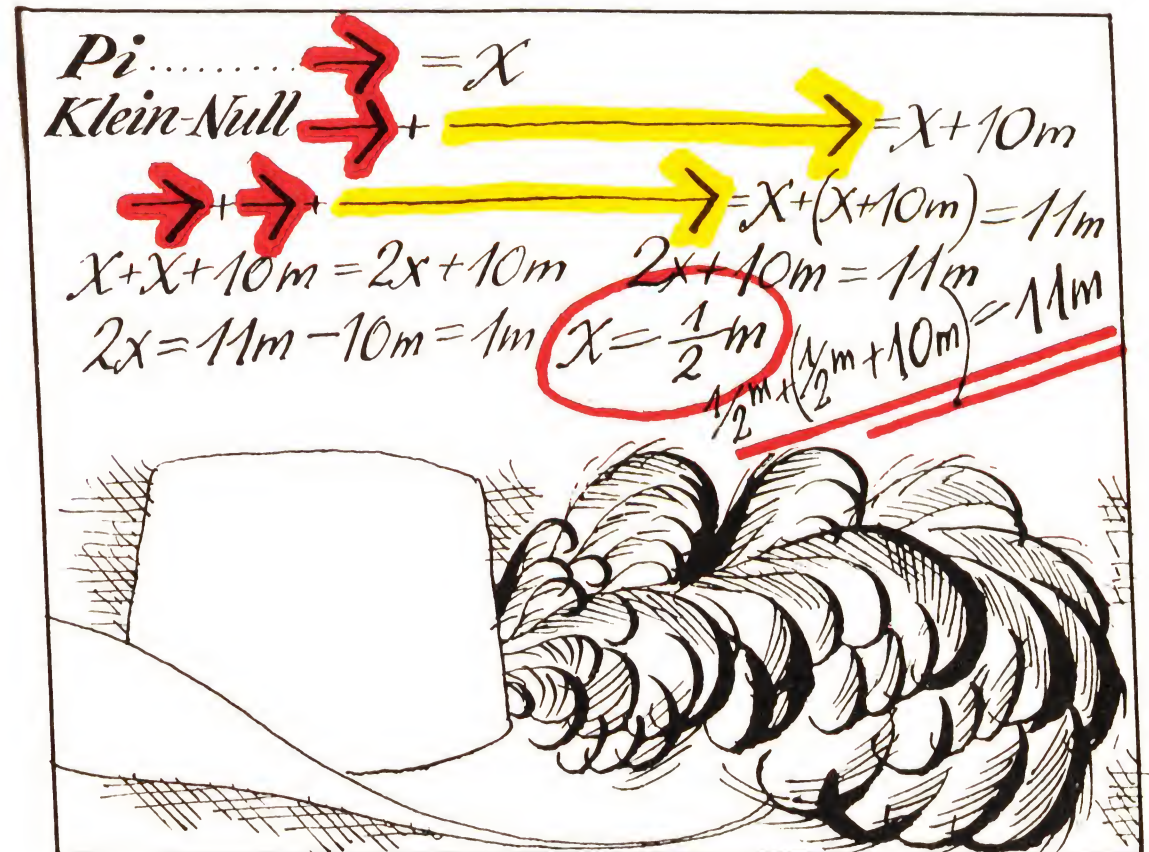 Pi.......... → = x
Klein-Null → + → = x+10m
→ + → + → = x+(x+10m) = 11m
x+x+10m = 2x+10m 2x+10m = 11m
2x = 11m - 10m = 1m x = 1/2 m
1/2 m + (1/2 m + 10m) = 11m